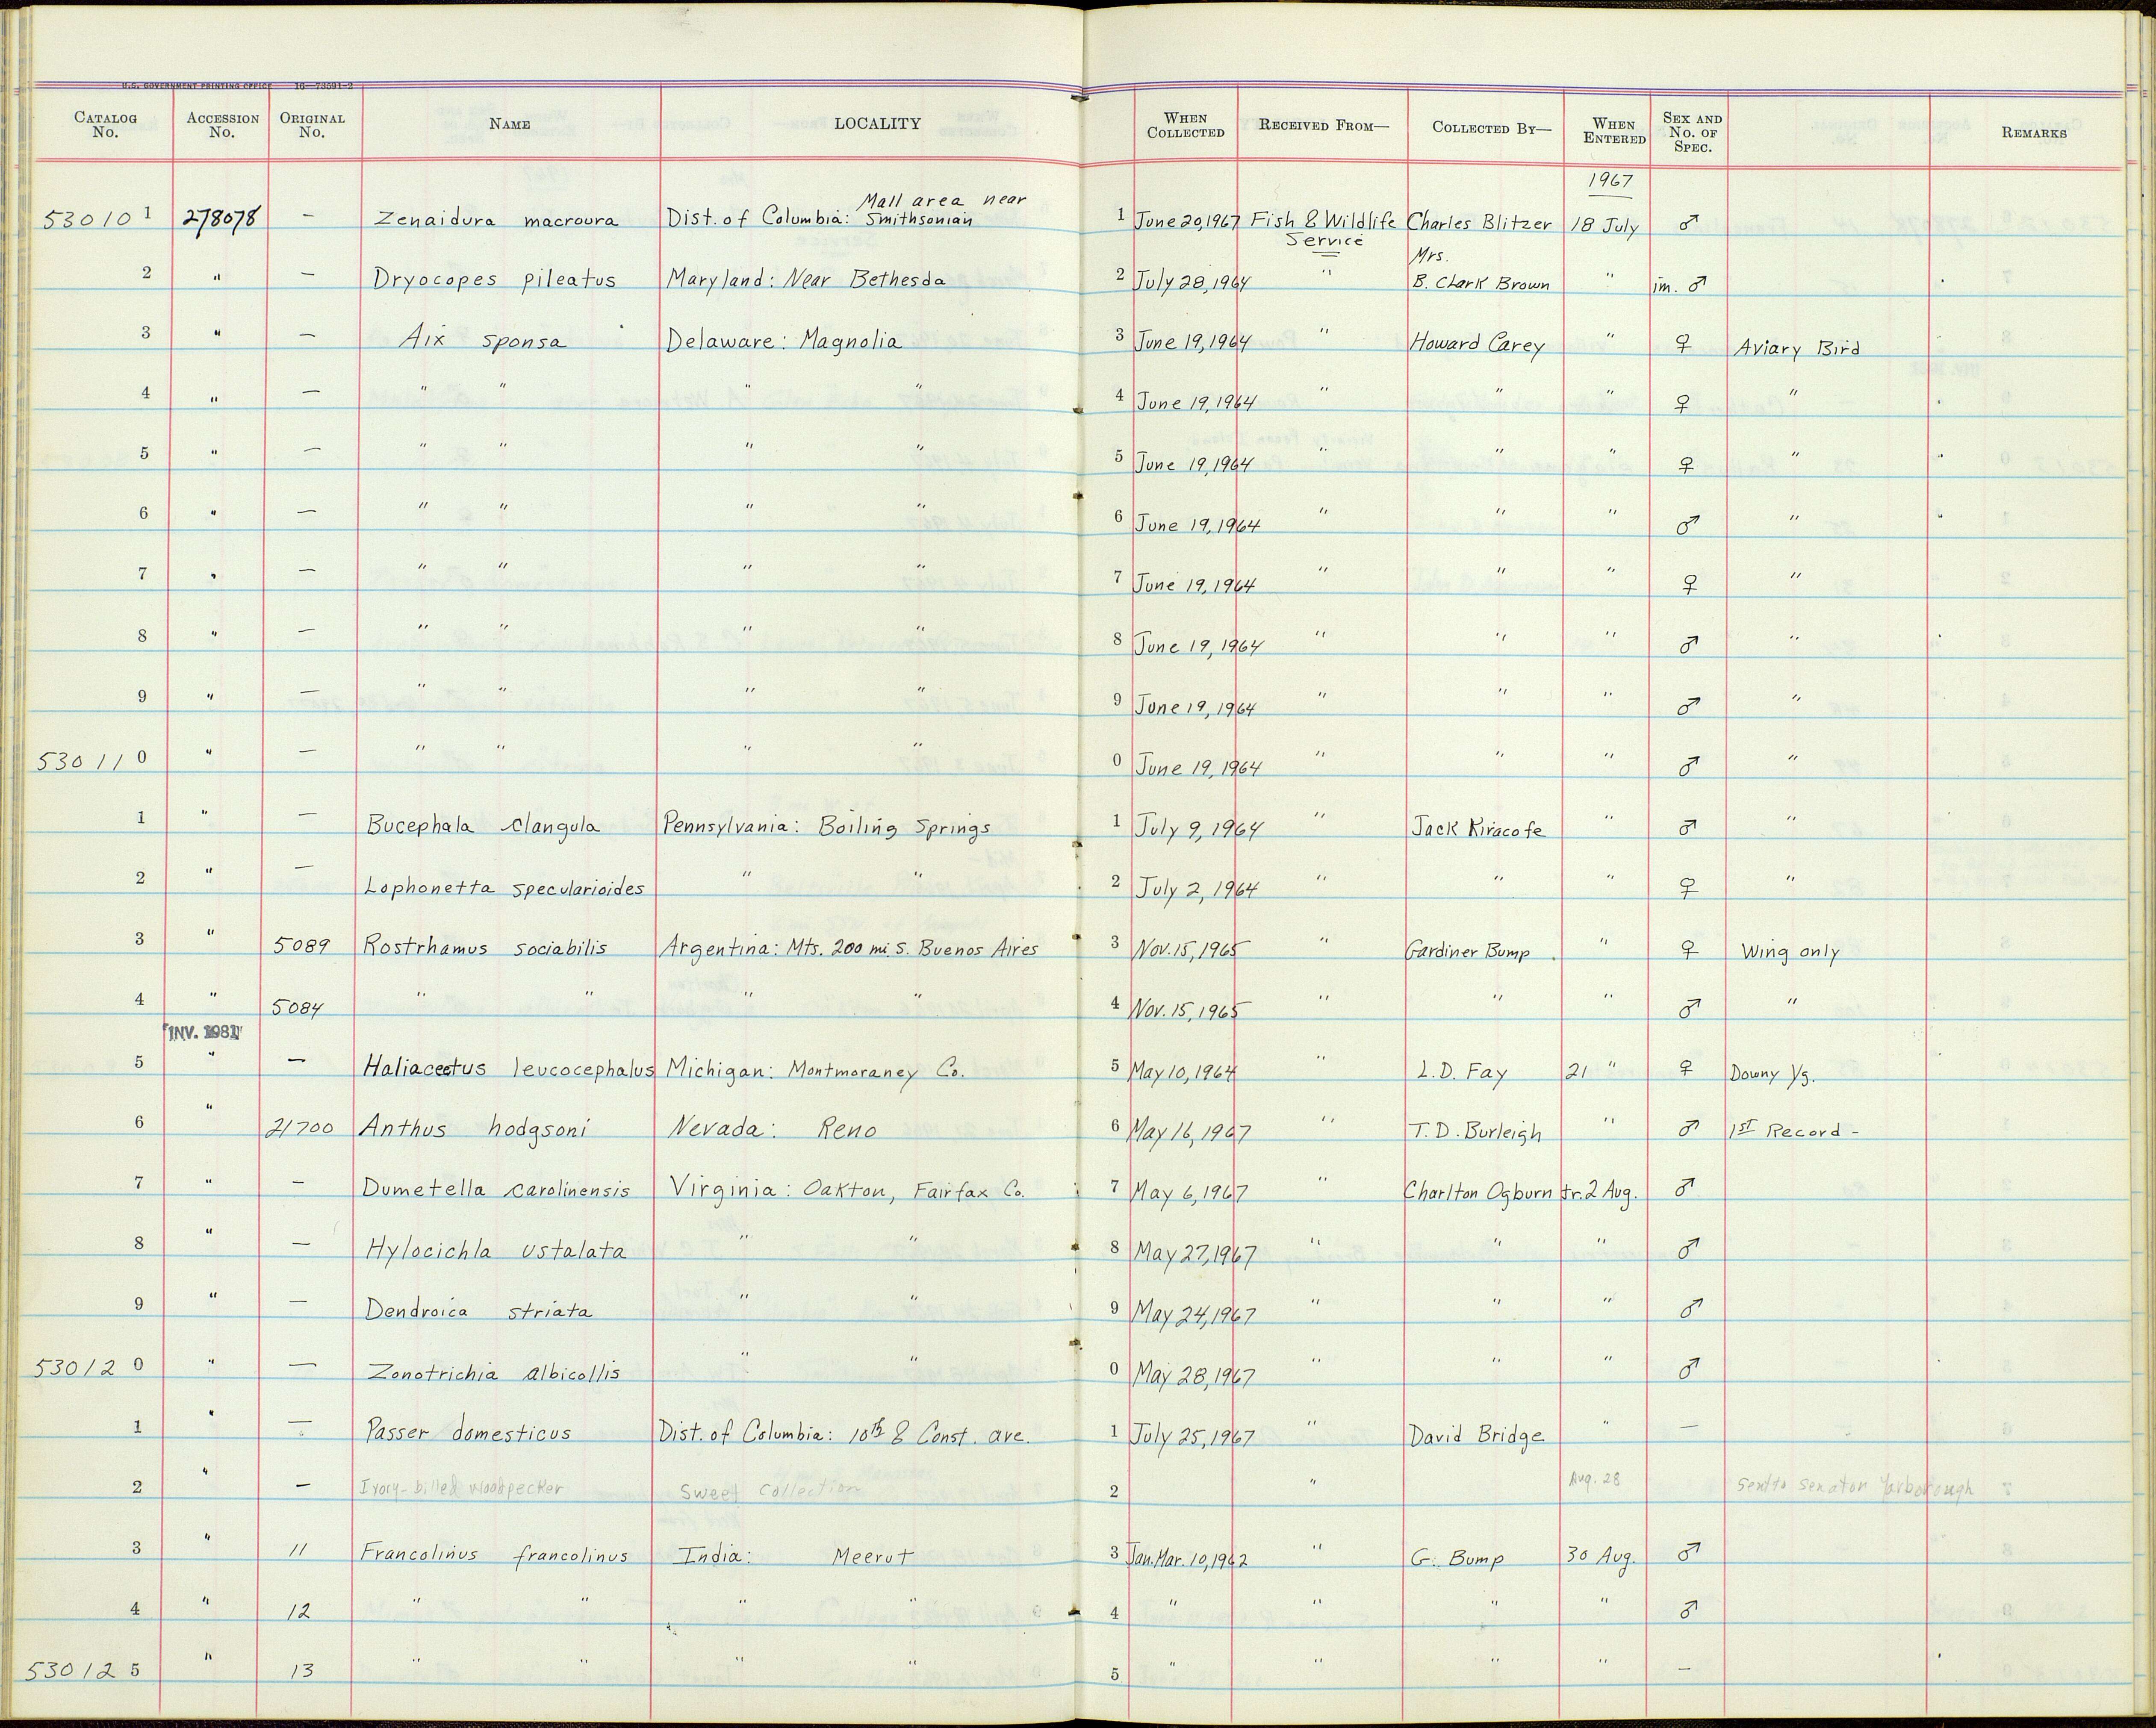 U.S. GOVERNMENT PRINTING OFFICE 16—73591-2
CATALOG No. ACCESSION No. ORIGINAL No. NAME LOCALITY WHEN COLLECTED RECEIVED FROM— COLLECTED BY— WHEN ENTERED SEX AND No. OF SPEC. REMARKS
1967
Mall area near
53010 1 278078 — Zenaidura macroura Dist. of Columbia: Smithsonian 1 June 20, 1967 Fish & Wildlife Service Charles Blitzer 18 July ♂
2 " — Dryocopes pileatus Maryland: Near Bethesda 2 July 28, 1964 " Mrs. B. Clark Brown " im. ♂
3 " — Aix sponsa Delaware: Magnolia 3 June 19, 1964 " Howard Carey " ♀ Aviary Bird
4 " — " " " " 4 June 19, 1964 " " " ♀ "
5 " — " " " " 5 June 19, 1964 " " " ♀ "
6 " — " " " " 6 June 19, 1964 " " " ♂ "
7 " — " " " " 7 June 19, 1964 " " " ♀ "
8 " — " " " " 8 June 19, 1964 " " " ♂ "
9 " — " " " " 9 June 19, 1964 " " " ♂ "
53011 0 " — " " " " 0 June 19, 1964 " " " ♂ "
1 " — Bucephala clangula Pennsylvania: Boiling Springs 1 July 9, 1964 " Jack Kiracofe " ♂ "
2 " — Lophonetta specularioides " " 2 July 2, 1964 " " " ♀ "
3 " 5089 Rostrhamus sociabilis Argentina: Mts. 200 mi. S. Buenos Aires 3 Nov. 15, 1965 " Gardiner Bump " ♀ Wing only
4 " 5084 " " " " 4 Nov. 15, 1965 " " " ♂ "
INV. 1981
5 " — Haliaeetus leucocephalus Michigan: Montmoraney Co. 5 May 10, 1964 " L.D. Fay 21 " ♀ Downy Yg.
6 " 21700 Anthus hodgsoni Nevada: Reno 6 May 16, 1967 " T.D. Burleigh " ♂ 1st Record -
7 " — Dumetella carolinensis Virginia: Oakton, Fairfax Co. 7 May 6, 1967 " Charlton Ogburn Jr. 2 Aug. ♂
8 " — Hylocichla ustalata " " 8 May 27, 1967 " " " ♂
9 " — Dendroica striata " " 9 May 24, 1967 " " " ♂
53012 0 " — Zonotrichia albicollis " " 0 May 28, 1967 " " " ♂
1 " — Passer domesticus Dist. of Columbia: 10th & Const. ave. 1 July 25, 1967 " David Bridge " —
2 " — Ivory-billed woodpecker Sweet Collection 2 " Aug. 28 Sent to Senator Yarborough
3 " 11 Francolinus francolinus India: Meerut 3 Jan. Mar. 10, 1962 " G. Bump 30 Aug. ♂
4 " 12 " " " " 4 " " " " ♂
53012 5 " 13 " " " " 5 " " " " —